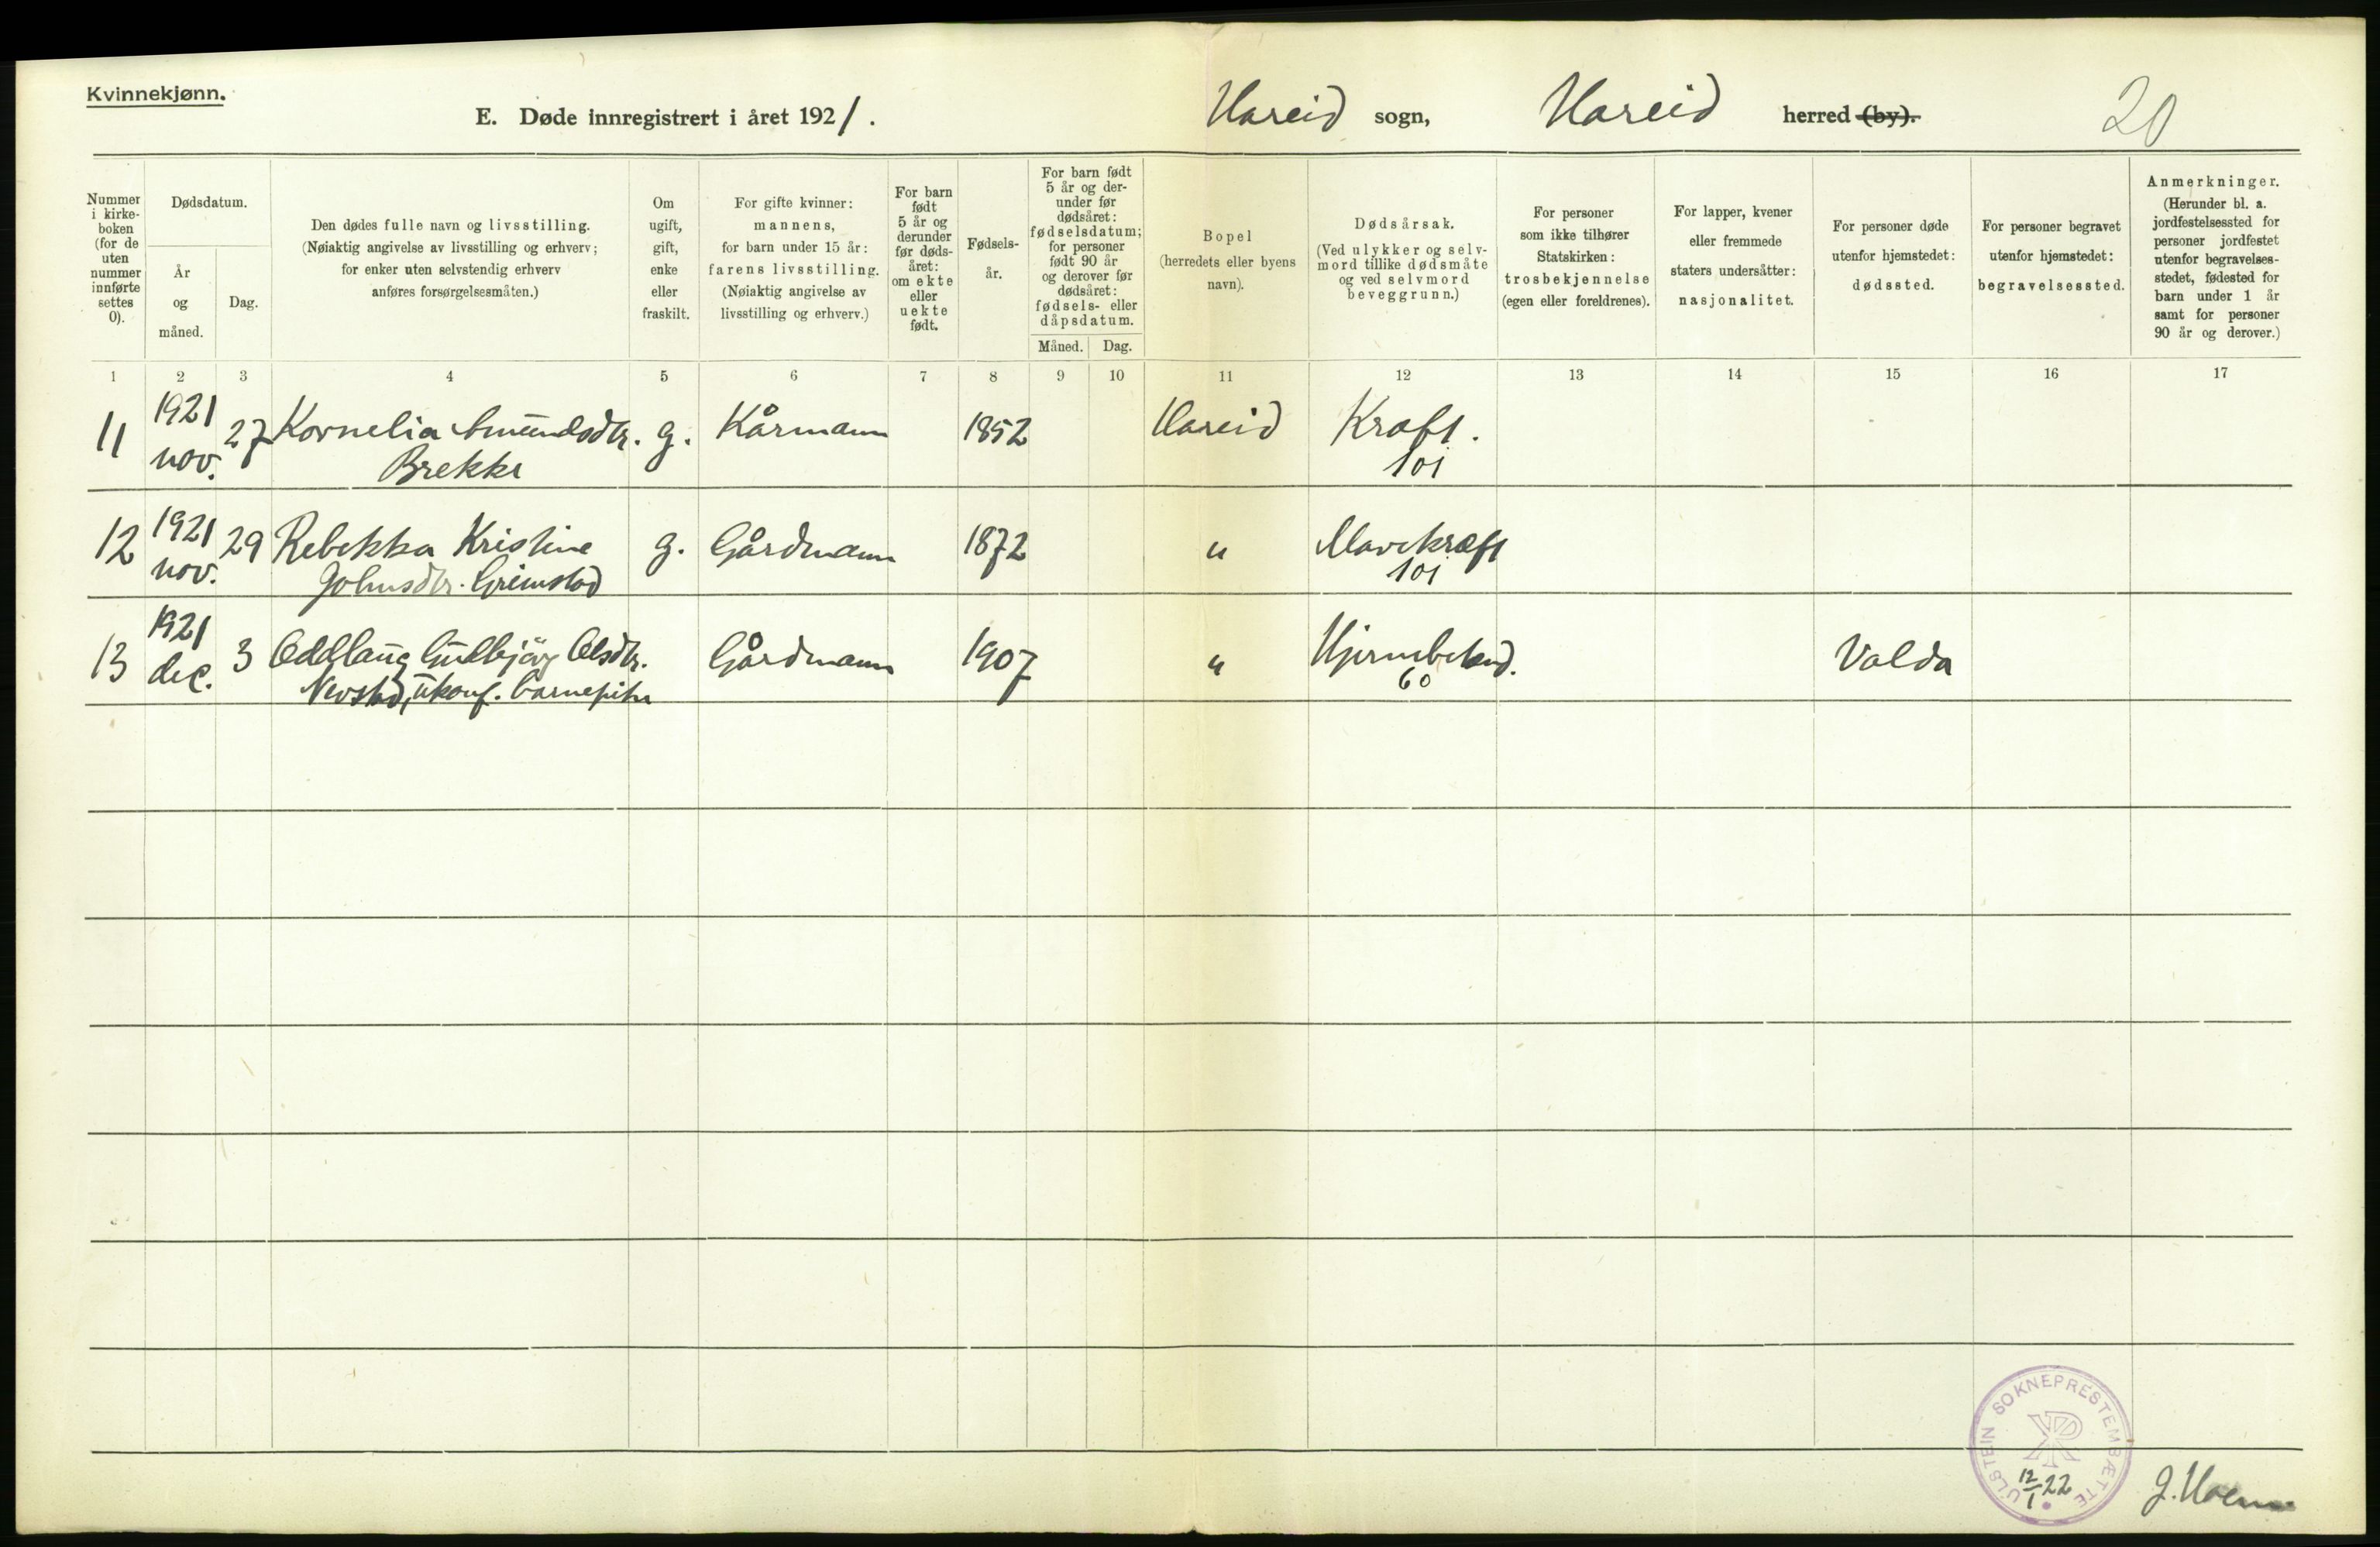 Kvinnekjønn.
E. Døde innregistrert i året 1921.
Hareid sogn, Hareid herred (by).
20
Nummer i kirke- boken (for de uten nummer innførte settes 0).
Dødsdatum.
År og måned.
Dag.
Den dødes fulle navn og livsstilling.
(Nøiaktig angivelse av livsstilling og erhverv;
for enker uten selvstendig erhverv
anføres forsørgelsesmåten.)
Om
ugift,
gift,
enke
eller
fraskilt.
For gifte kvinner:
mannens,
for barn under 15 år:
farens livsstilling.
(Nøiaktig angivelse av
livsstilling og erhverv.)
For barn
født
5 år og
derunder
før døds-
året:
om ekte
eller
uekte
født.
Fødsels-
år.
For barn født
5 år og der-
under før
dødsåret:
fødselsdatum;
for personer
født 90 år
og derover før
dødsåret:
fødsels- eller
dåpsdatum.
Måned. Dag.
Bopel
(herredets eller byens
navn).
Dødsårsak.
(Ved ulykker og selv-
mord tillike dødsmåte
og ved selvmord
beveggrunn.)
For personer
som ikke tilhører
Statskirken:
trosbekjennelse
(egen eller foreldrenes).
For lapper, kvener
eller fremmede
staters undersåtter:
nasjonalitet.
For personer døde
utenfor hjemstedet:
dødssted.
For personer begravet
utenfor hjemstedet:
begravelsessted.
Anmerkninger.
(Herunder bl. a.
jordfestelsessted for
personer jordfestet
utenfor begravelses-
stedet, fødested for
barn under 1 år
samt for personer
90 år og derover.)
1 2 3 4 5 6 7 8 9 10 11 12 13 14 15 16 17
11 1921 nov. 27 Kornelia Amundsdtr. g. Kårmann 1852 Hareid Kræft.
Brekke 101
12 1921 nov. 29 Rebekka Kristine g. Gårdmann 1872 " Mavekræft
Johnsdtr. Grimstad 101
13 1921 dec. 3 Oddlaug Gudbjörg Olsdtr. Gårdmann 1907 " Hjernebetend. Volda
Nevstad, ukonf. 60
ULSTEIN SOKNEPRESTEMBÆTTE
12/1 22
J.